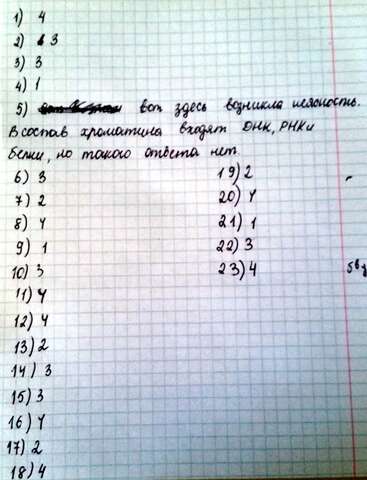 1) 4
2) 3
3) 3
4) 1
5) вот здесь возникла неясность.
В состав хроматина входят ДНК, РНК и
белки, но такого ответа нет.
6) 3
7) 2
8) 4
9) 1
10) 3
11) 4
12) 4
13) 2
14) 3
15) 3
16) 4
17) 2
18) 4
19) 2
20) 4
21) 1
22) 3
23) 4